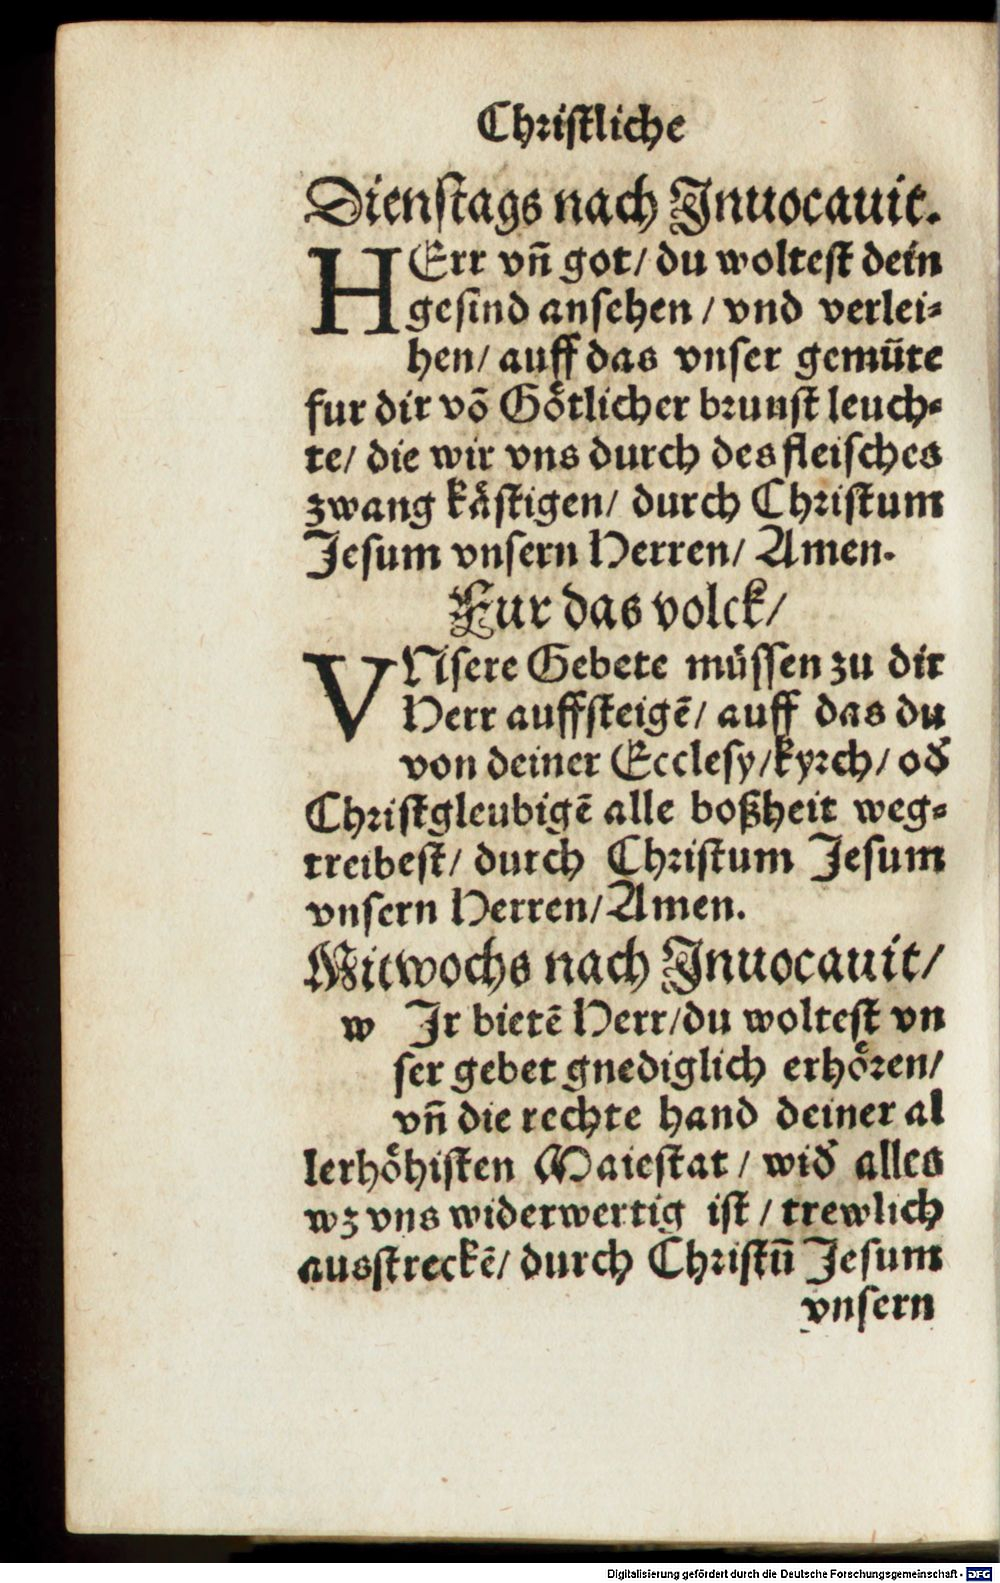 Christliche
Dienstags nach Inuocauit.
HErr vñ got/ du woltest dein
gesind ansehen / vnd verlei-
hen/ auff das vnser gemüte
fur dir võ Götlicher brunst leuch-
te/ die wir vns durch des fleisches
zwang kästigen/ durch Christum
Jesum vnsern Herren/ Amen.
Fur das volck/
VNsere Gebete müssen zu dir
Herr auffsteigẽ/ auff das du
von deiner Ecclesy/kyrch/ od̕
Christgleubigẽ alle boßheit weg-
treibest/ durch Christum Jesum
vnsern Herren/Amen.
Mitwochs nach Inuocauit/
w Ir bietẽ Herr/du woltest vn
ser gebet gnediglich erhören/
vñ die rechte hand deiner al
lerhöhisten Maiestat / wid̕ alles
wz vns widerwertig ist / trewlich
ausstreckẽ/ durch Christũ Jesum
vnsern
Digitalisierung gefördert durch die Deutsche Forschungsgemeinschaft - DFG